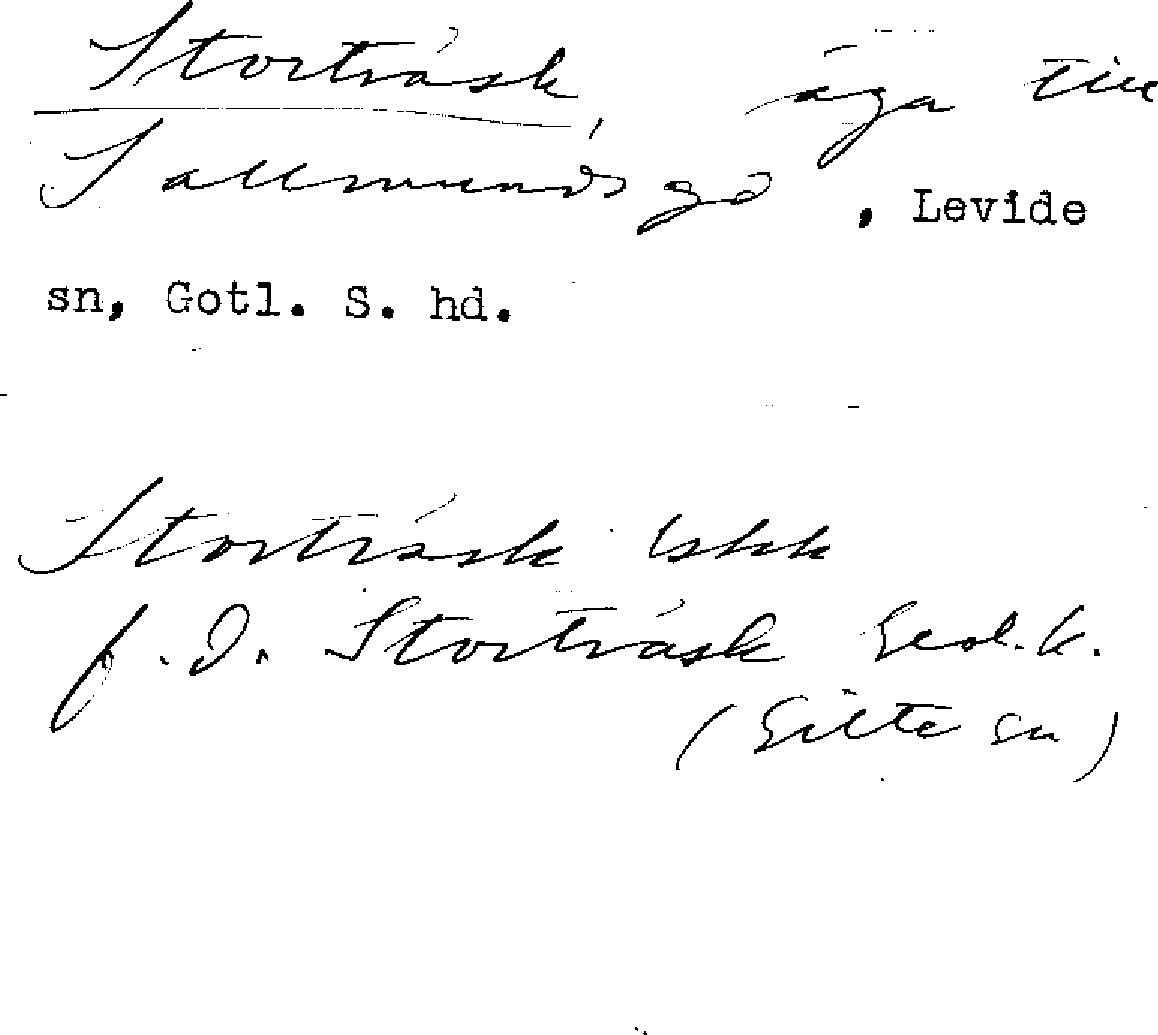 Storträsk äga till
Sallmunds gd, Levide
sn, Gotl. S. hd.
Storträsk bskk
f. D. Storträsk Geol. k.
(Silte sn)